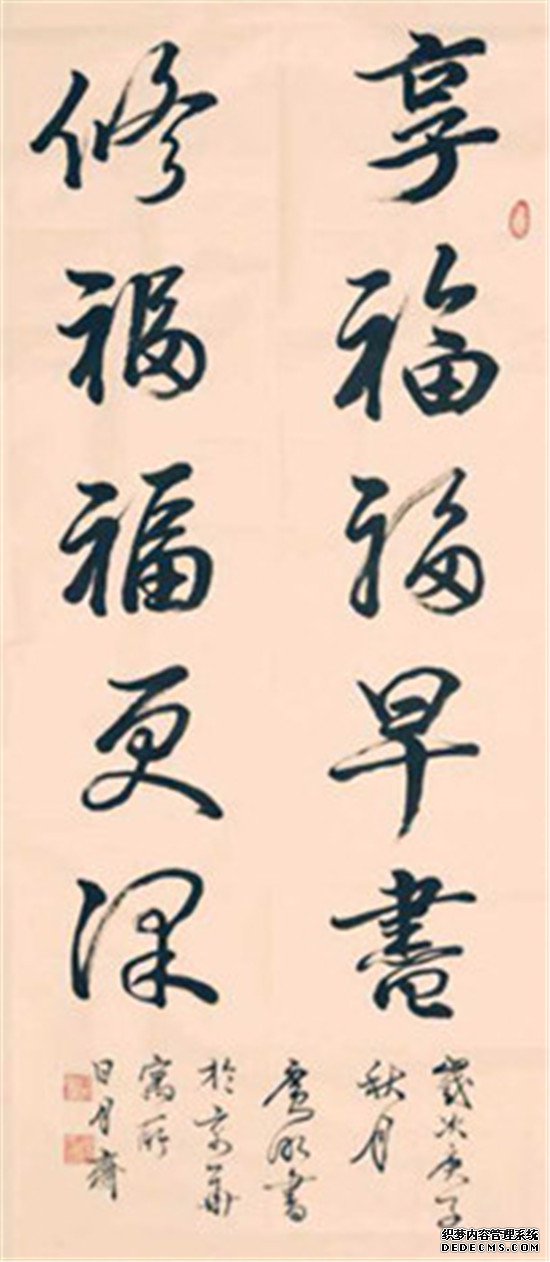 享福福早盡
修福福更深
歲次庚子
秋月
書
於京華
寓所
日月齋
织梦内容管理系统
DEDECMS.COM